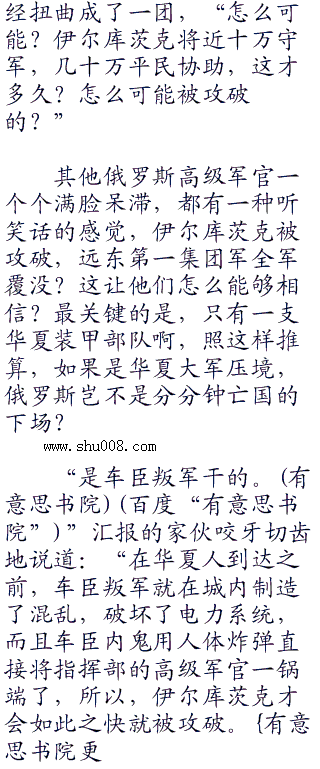 经扭曲成了一团，“怎么可
能？伊尔库茨克将近十万守
军，几十万平民协助，这才
多久？怎么可能被攻破
的？”
其他俄罗斯高级军官一
个个满脸呆滞，都有一种听
笑话的感觉，伊尔库茨克被
攻破，远东第一集团军全军
覆没？这让他们怎么能够相
信？最关键的是，只有一支
华夏装甲部队啊，照这样推
算，如果是华夏大军压境，
俄罗斯岂不是分分钟亡国的
下场？
www.shu008.com
“是车臣叛军干的。(有
意思书院)(百度“有意思书
院”)”汇报的家伙咬牙切齿
地说道：“在华夏人到达之
前，车臣叛军就在城内制造
了混乱，破坏了电力系统，
而且车臣内鬼用人体炸弹直
接将指挥部的高级军官一锅
端了，所以，伊尔库茨克才
会如此之快就被攻破。{有意
思书院更